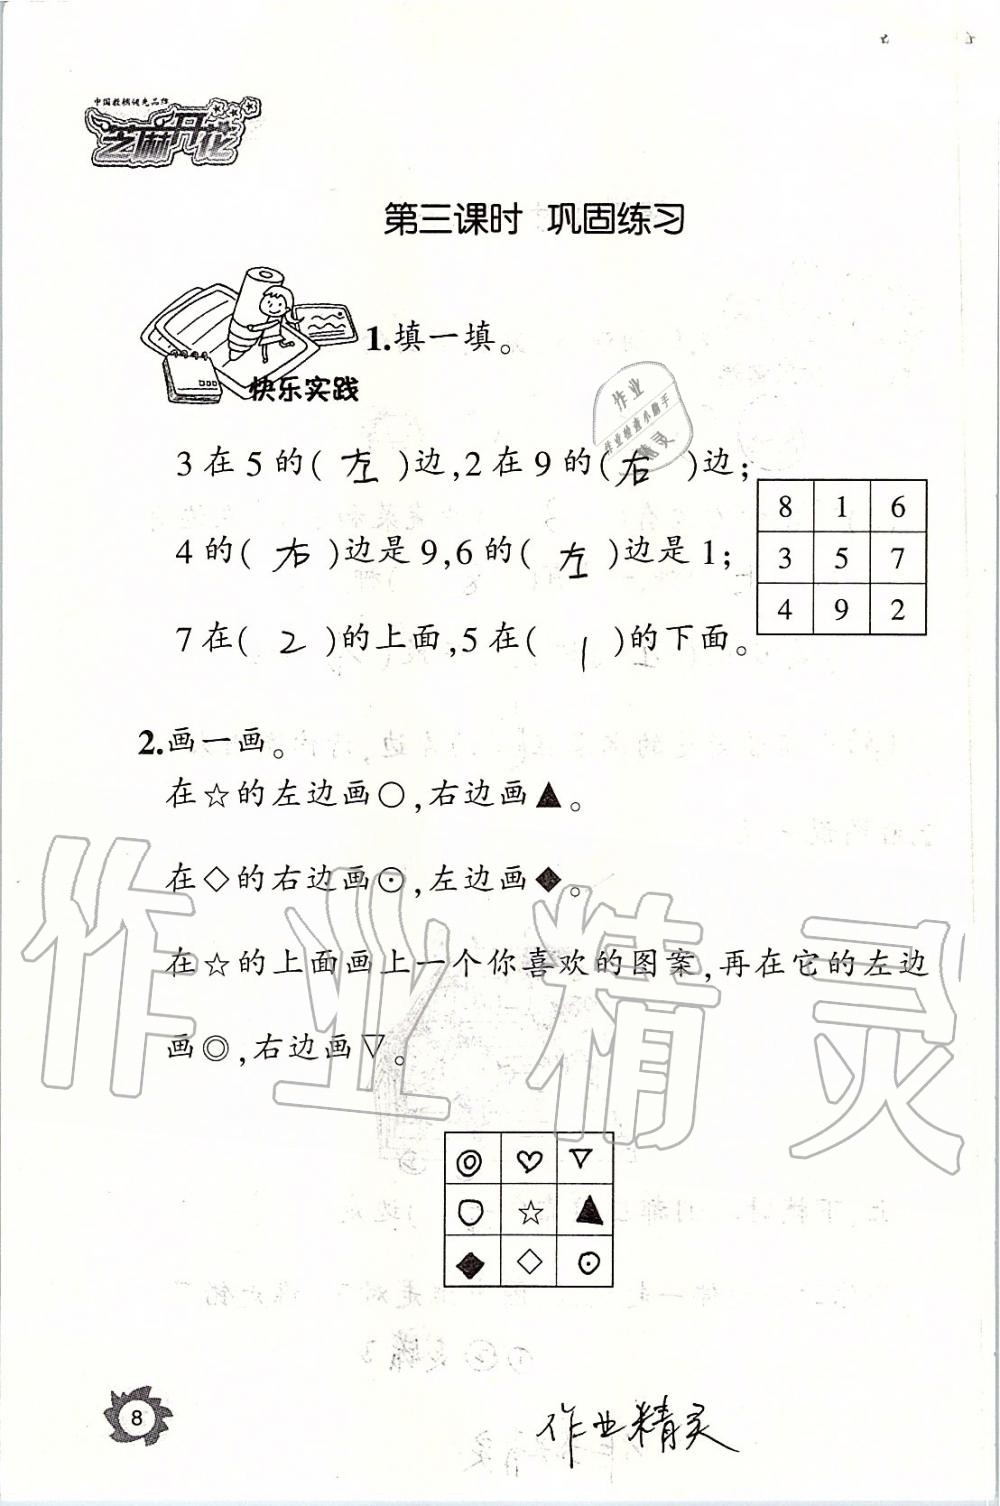 中国教辅领先品牌
芝麻开花
第三课时 巩固练习
快乐实践
1.填一填。
3在5的(左)边,2在9的(右)边;
4的(右)边是9,6的(左)边是1;
7在(2)的上面,5在(1)的下面。
8 1 6
3 5 7
4 9 2
2.画一画。
在☆的左边画○,右边画▲。
在◇的右边画⊙,左边画◆。
在☆的上面画上一个你喜欢的图案,再在它的左边
画◎,右边画▽。
作业
作业检查小助手
精灵
作业精灵
8
作业精灵